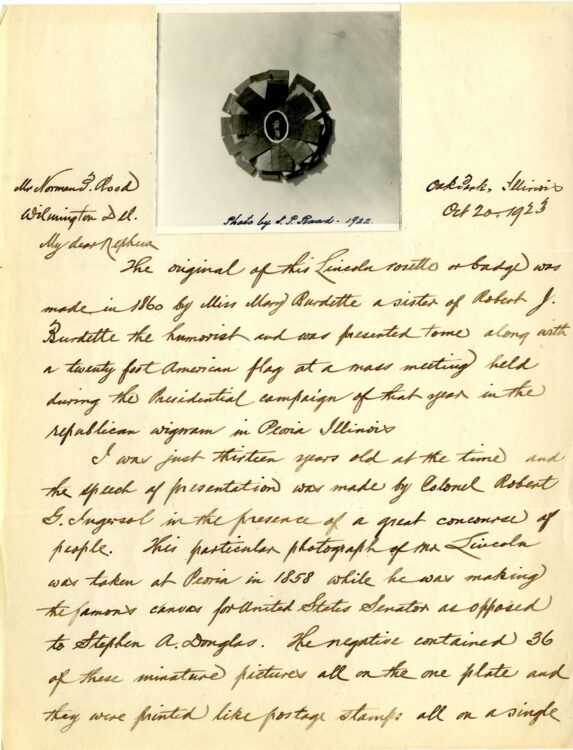 Photo by S. P. Rood - 1922.
Mr Norman P. Rood
Wilmington Del.
My dear Nephew
Oak Park, Illinois
Oct 20 - 1923
The original of this Lincoln rosette or badge was
made in 1860 by Miss Mary Burdette a sister of Robert J.
Burdette the humorist and was presented to me along with
a twenty foot American flag at a mass meeting held
during the Presidential campaign of that year in the
republican wigwam in Peoria Illinois
I was just thirteen years old at the time and
the speech of presentation was made by Colonel Robert
G. Ingersol in the presence of a great concourse of
people. This particular photograph of Mr Lincoln
was taken at Peoria in 1858 while he was making
the famous canvas for United States Senator as opposed
to Stephen A. Douglas. The negative contained 36
of these minature pictures all on the one plate and
they were printed like postage stamps all on a single